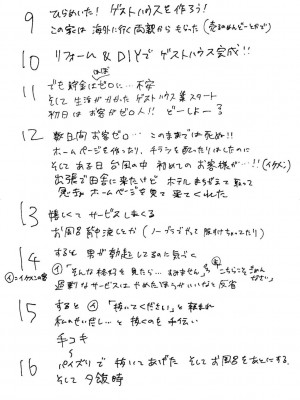 9 ひらめいた！ゲストハウスを作ろう！
この家は海外に行く両親からもらった（売るのめんどーとかで）
10 リフォーム&DIYでゲストハウス完成!!
ほぼ
11 でも貯金はゼロに…不安
そして生活がかかったゲストハウス業スタート
初日はお客がゼロ人!! どーしよー
12 数日間お客ゼロ… このままでは死ぬ!!
ホームページを作ったり、チラシを配ったりはしたのに
そしてある日台風の中 初めてのお客様が…!!(イケメン)
出張で田舎に来たけど ホテルまちがえて取って
急きょホームページを見て来てくれた
13 嬉しくてサービスしまくる
お風呂背中流しとか（ノーブラでやって
14 すると男が勃起してるのに気づく
イ=イケメンの客
イ「そんな格好を見たら…すみません」 「こちらこそごめんなさい」
過剰なサービスはやめたほうがいいなと反省
15 すると イ「抜いてください」と頼まれ
私のせいだし…と抜くのを手伝い
手コキ
16 パイズリで抜いてあげた そしてお風呂をあとにする
そして夕飯時